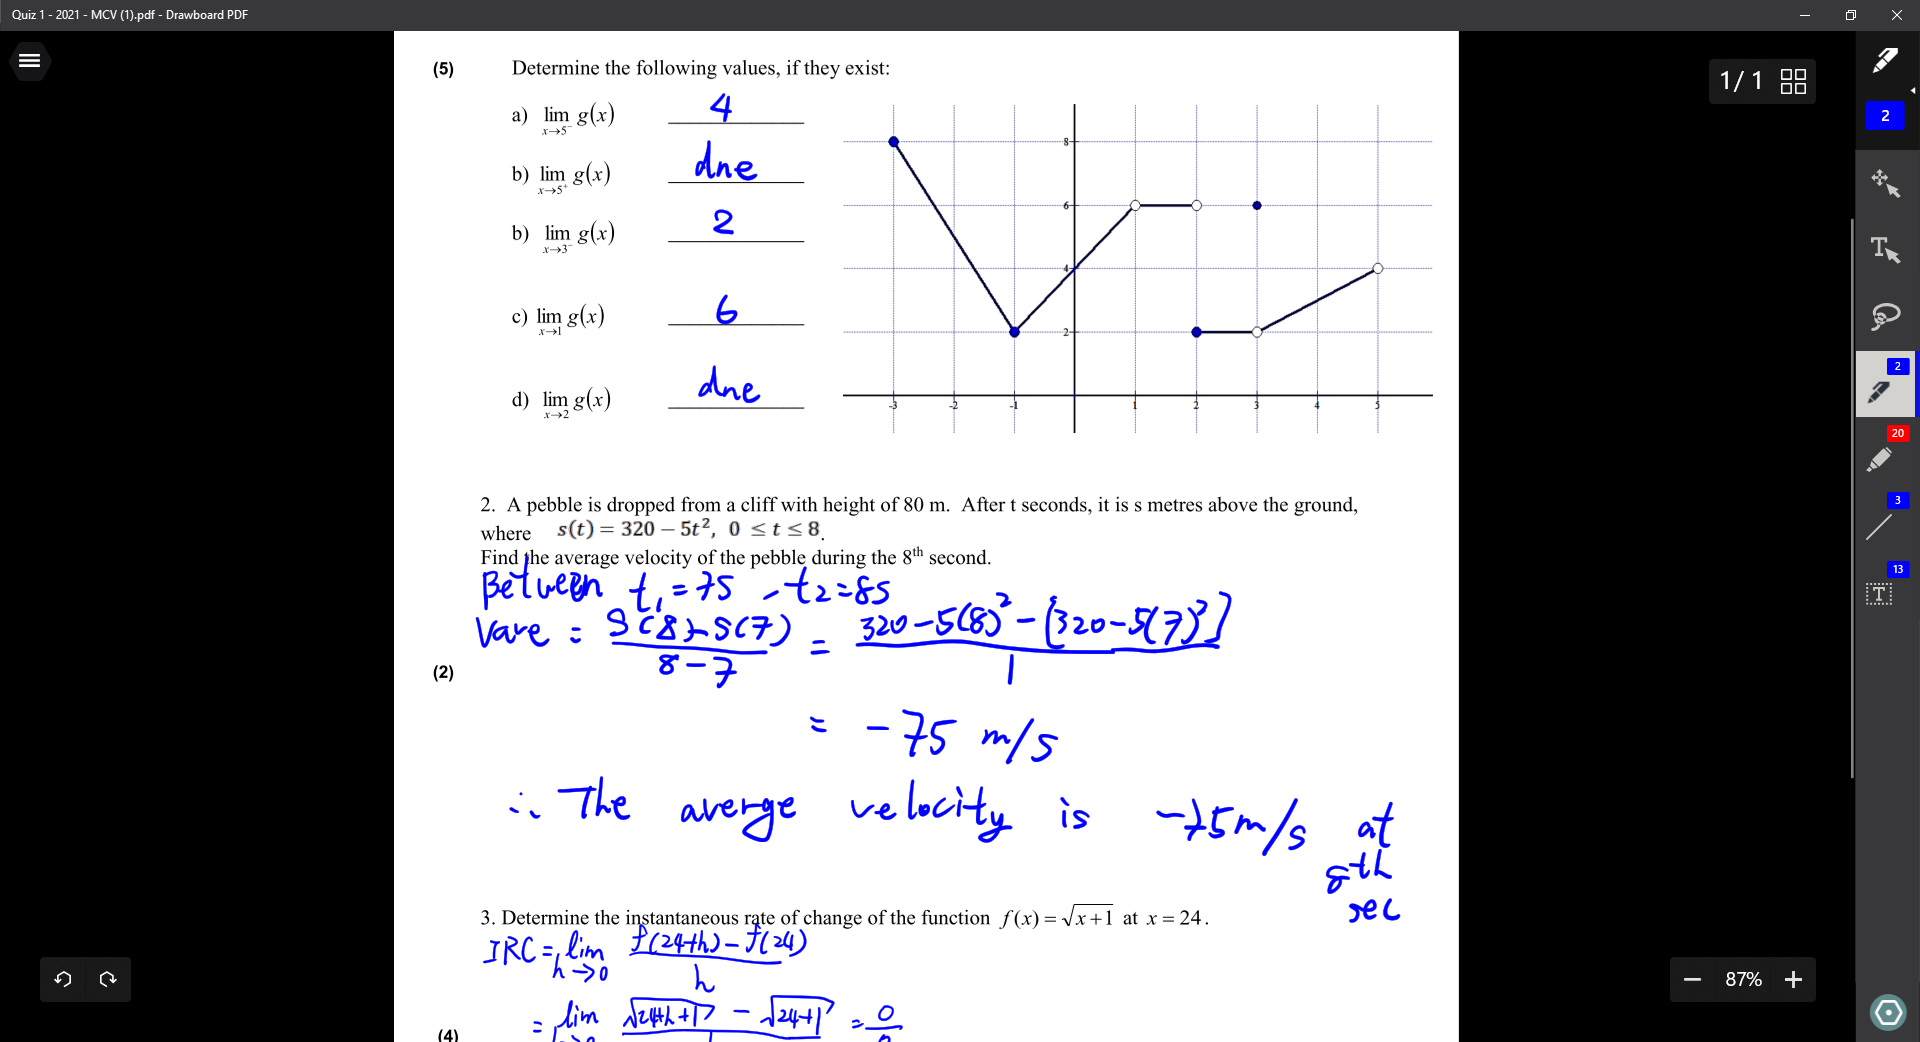 Quiz 1 - 2021 - MCV (1).pdf - Drawboard PDF
1 / 1
(5) Determine the following values, if they exist:
a) lim x→5⁻ g(x) 4
b) lim x→5⁺ g(x) dne
b) lim x→3⁻ g(x) 2
c) lim x→1 g(x) 6
d) lim x→2 g(x) dne
8
6
4
2
-3 -2 -1 1 2 3 4 5
2. A pebble is dropped from a cliff with height of 80 m. After t seconds, it is s metres above the ground,
where s(t) = 320 − 5t², 0 ≤ t ≤ 8.
Find the average velocity of the pebble during the 8th second.
Between t₁ = 7s , t₂ = 8s
Vave = (S(8) - S(7)) / (8 - 7) = (320 - 5(8)² - [320 - 5(7)²]) / 1
(2)
= -75 m/s
∴ The averge velocity is -75 m/s at
8th
sec
3. Determine the instantaneous rate of change of the function f(x) = √(x+1) at x = 24.
IRC = lim h→0 (f(24+h) - f(24)) / h
= lim √(24+h+1) - √(24+1) = 0
(4)
2
2
20
3
13
87%